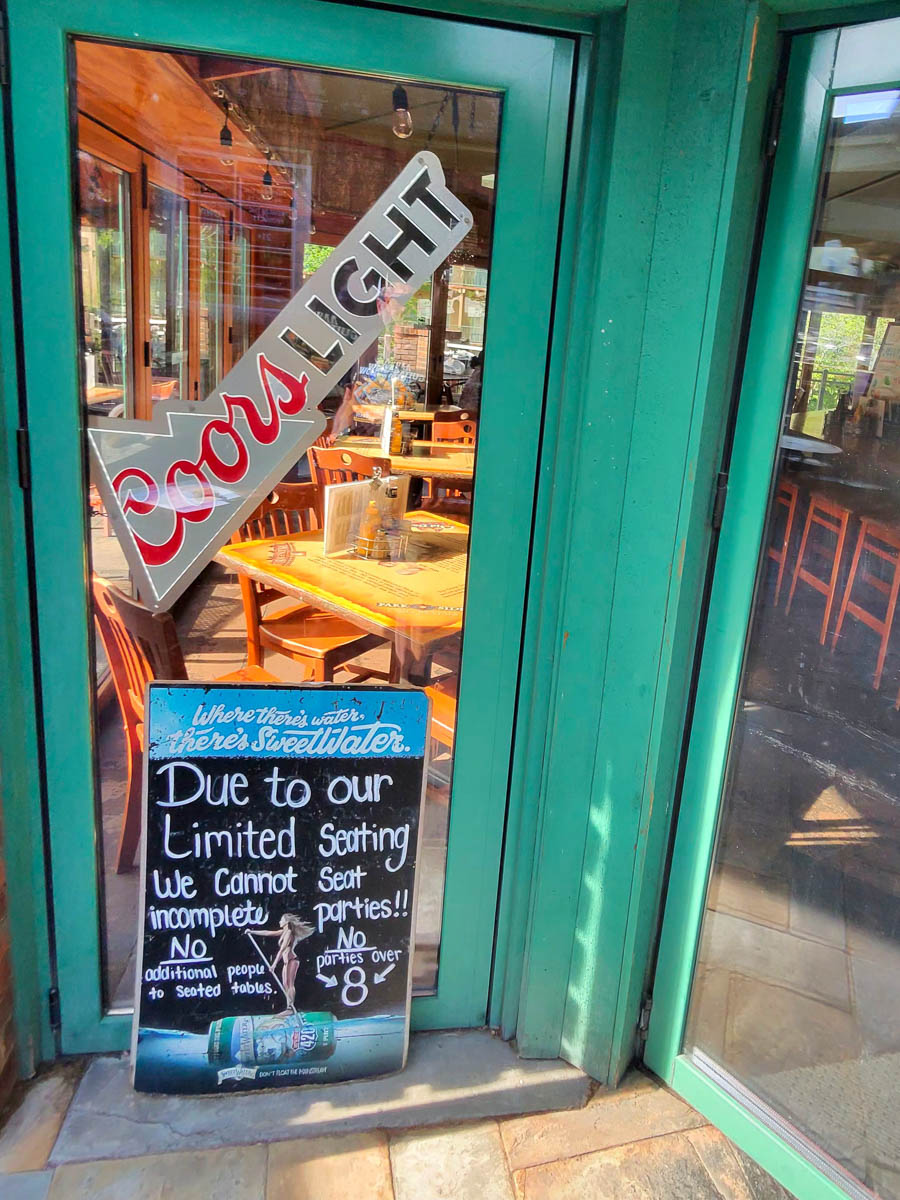 Coors LIGHT
Where there's water,
there's SweetWater.
Due to our
Limited Seating
We Cannot Seat
incomplete parties!!
No
additional people
to seated tables.
No
parties over
8
420
DON'T FLOAT THE MAINSTREAM